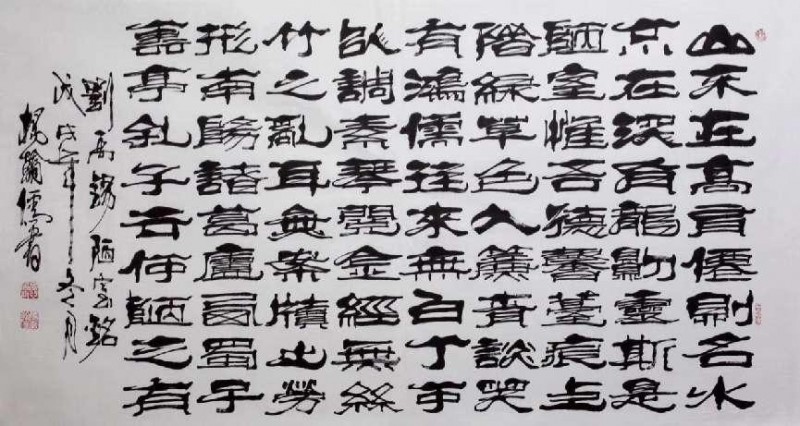 山不在高有僊則名水
不在深有龍則靈斯是
陋室惟吾德馨薹痕上
階緑草色入簾青談笑
有鴻儒往來無白丁可
以調素琴閱金經無絲
竹之亂耳無案牘之勞
形南陽諸葛廬西蜀子
雲亭孔子云何陋之有
劉禹錫陋室銘
戊戌年冬月
楊爾儒書